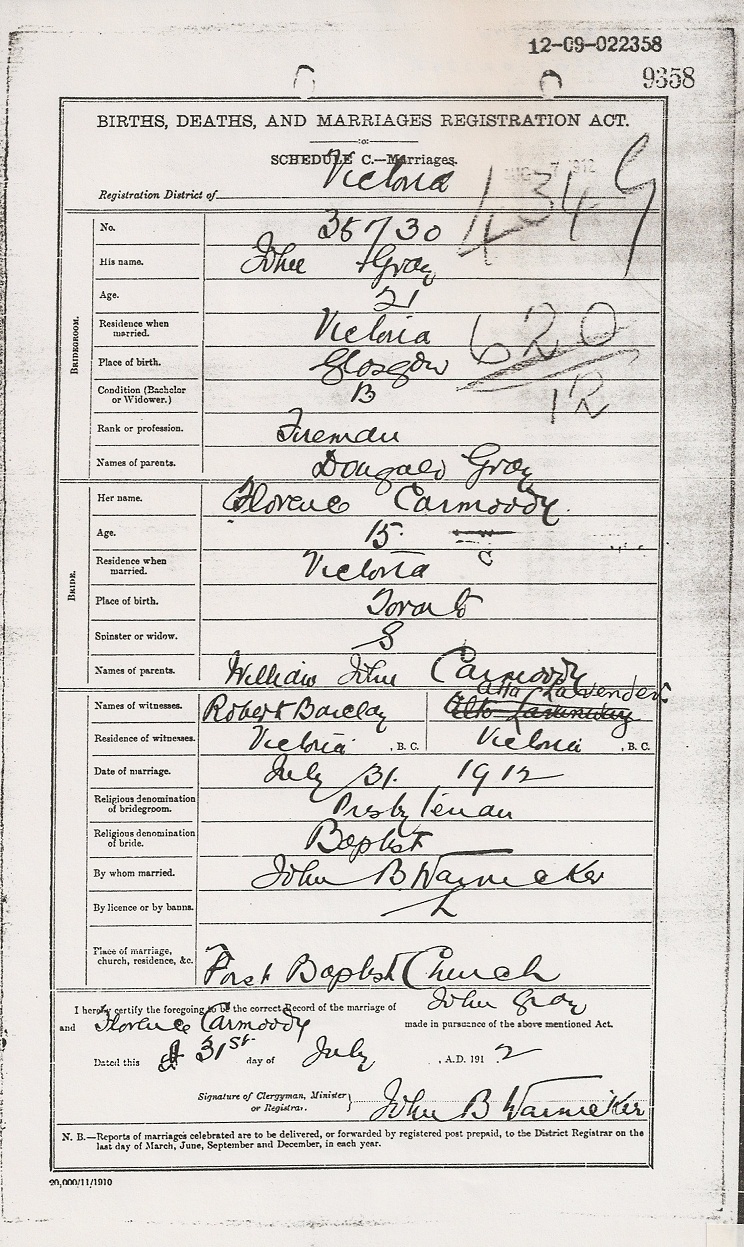 12-09-022358
9358
BIRTHS, DEATHS, AND MARRIAGES REGISTRATION ACT.
SCHEDULE C.—Marriages.
7 1912
Registration District of Victoria
4349
No. 35730
BRIDEGROOM.
His name. John Gray
Age. 21
Residence when married. Victoria
620
12
Place of birth. Glasgow
Condition (Bachelor or Widower.) B
Rank or profession. Fireman
Names of parents. Dougald Gray
BRIDE.
Her name. Florence Carmoody
Age. 15
C
Residence when married. Victoria
Place of birth. Toronto
Spinster or widow. S
Names of parents. William John Carmoody
Names of witnesses. Robert Barclay Alta Lavender
Residence of witnesses. Victoria, B. C. Victoria, B. C.
Date of marriage. July 31. 1912
Religious denomination of bridegroom. Presbyterian
Religious denomination of bride. Baptist
By whom married. John B Warnicker
By licence or by banns. L
Place of marriage, church, residence, &c. First Baptist Church
I hereby certify the foregoing to be the correct Record of the marriage of John Gray
and Florence Carmoody made in pursuance of the above mentioned Act.
Dated this 31st day of July, A.D. 1912
Signature of Clergyman, Minister or Registrar. John B Warnicker
N. B.—Reports of marriages celebrated are to be delivered, or forwarded by registered post prepaid, to the District Registrar on the
last day of March, June, September and December, in each year.
20,000/11/1910